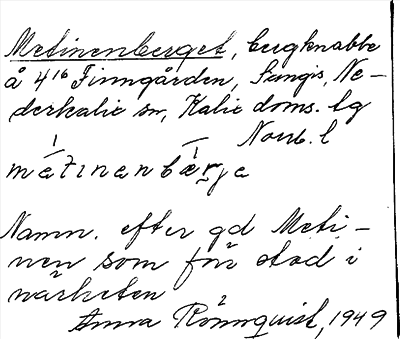 Metinenberget, bergknabbe
å 4¹⁶ Finngården, Sangis, Ne-
derkalix sn, Kalix doms. lg
Norrb. l
métinenbærje
Namn. efter gd Meti-
nen som förr stod i
närheten
Anna Rönnquist, 1949